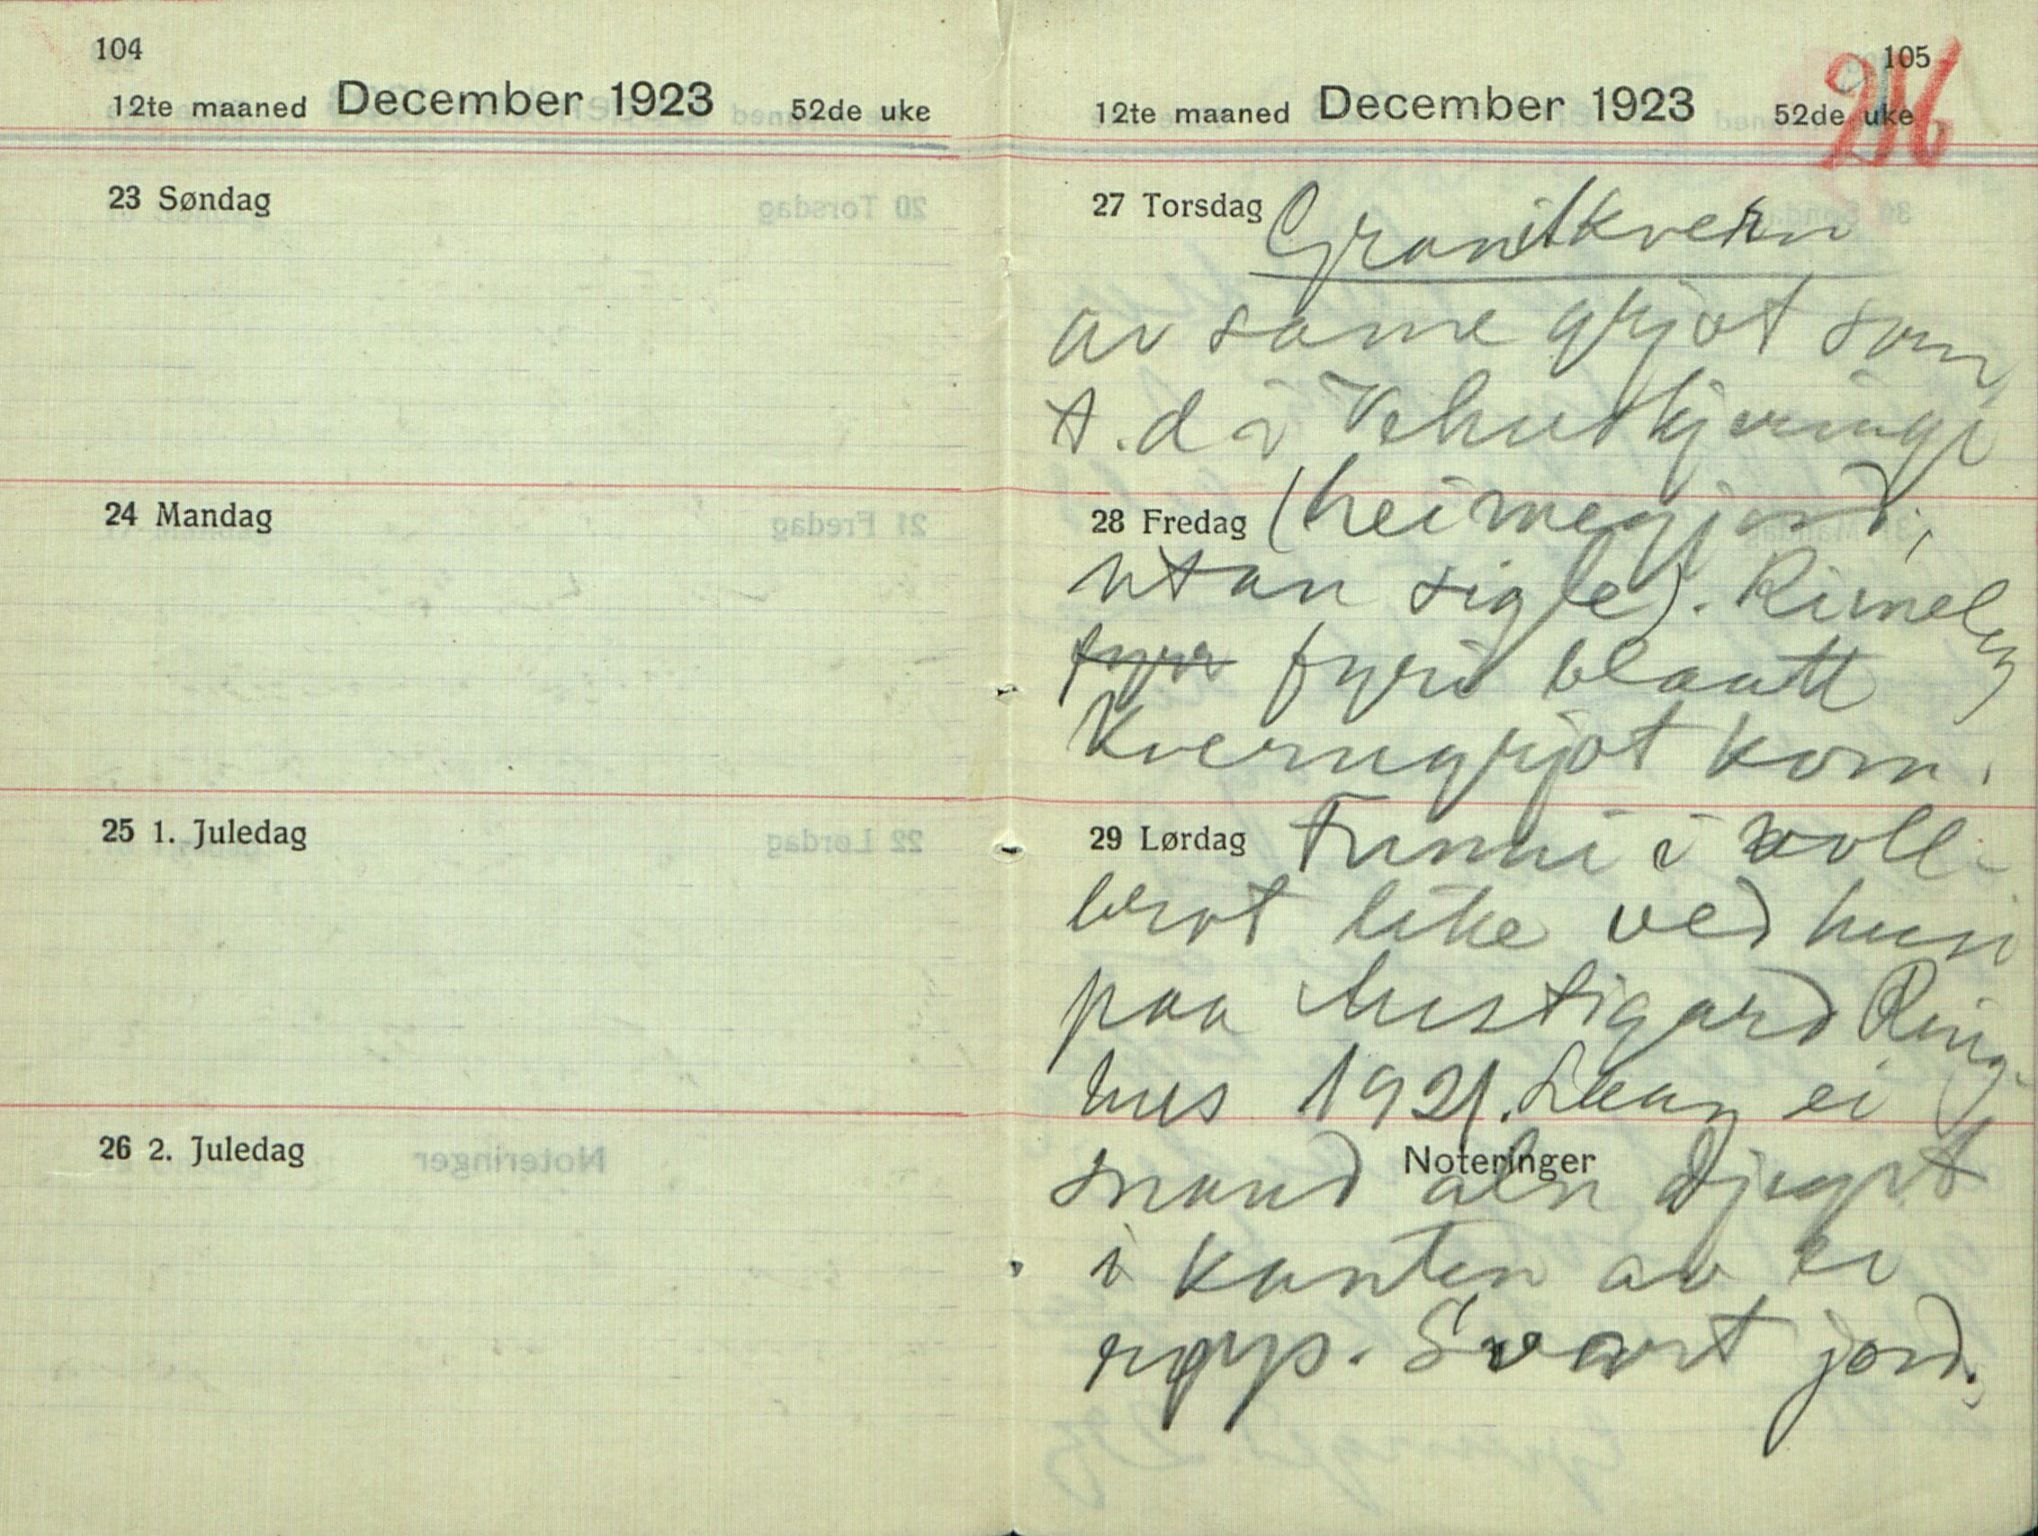 104
12te maaned December 1923 52de uke
23 Søndag
24 Mandag
25 1. Juledag
26 2. Juledag
105
216
12te maaned December 1923 52de uke
27 Torsdag Granitkvern
av same grjot som
t.d i
28 Fredag (heimegjord,
utan sigle). Rimeleg
fyrr fyri blautt
Kverngrjot kom.
29 Lørdag Funni i voll-
brot like ved husi
paa Mustigard Ring-
hus 1921. Laag ei
Noteringer
snaud aln djupt
i kanten av ei
røys. Svart jord.